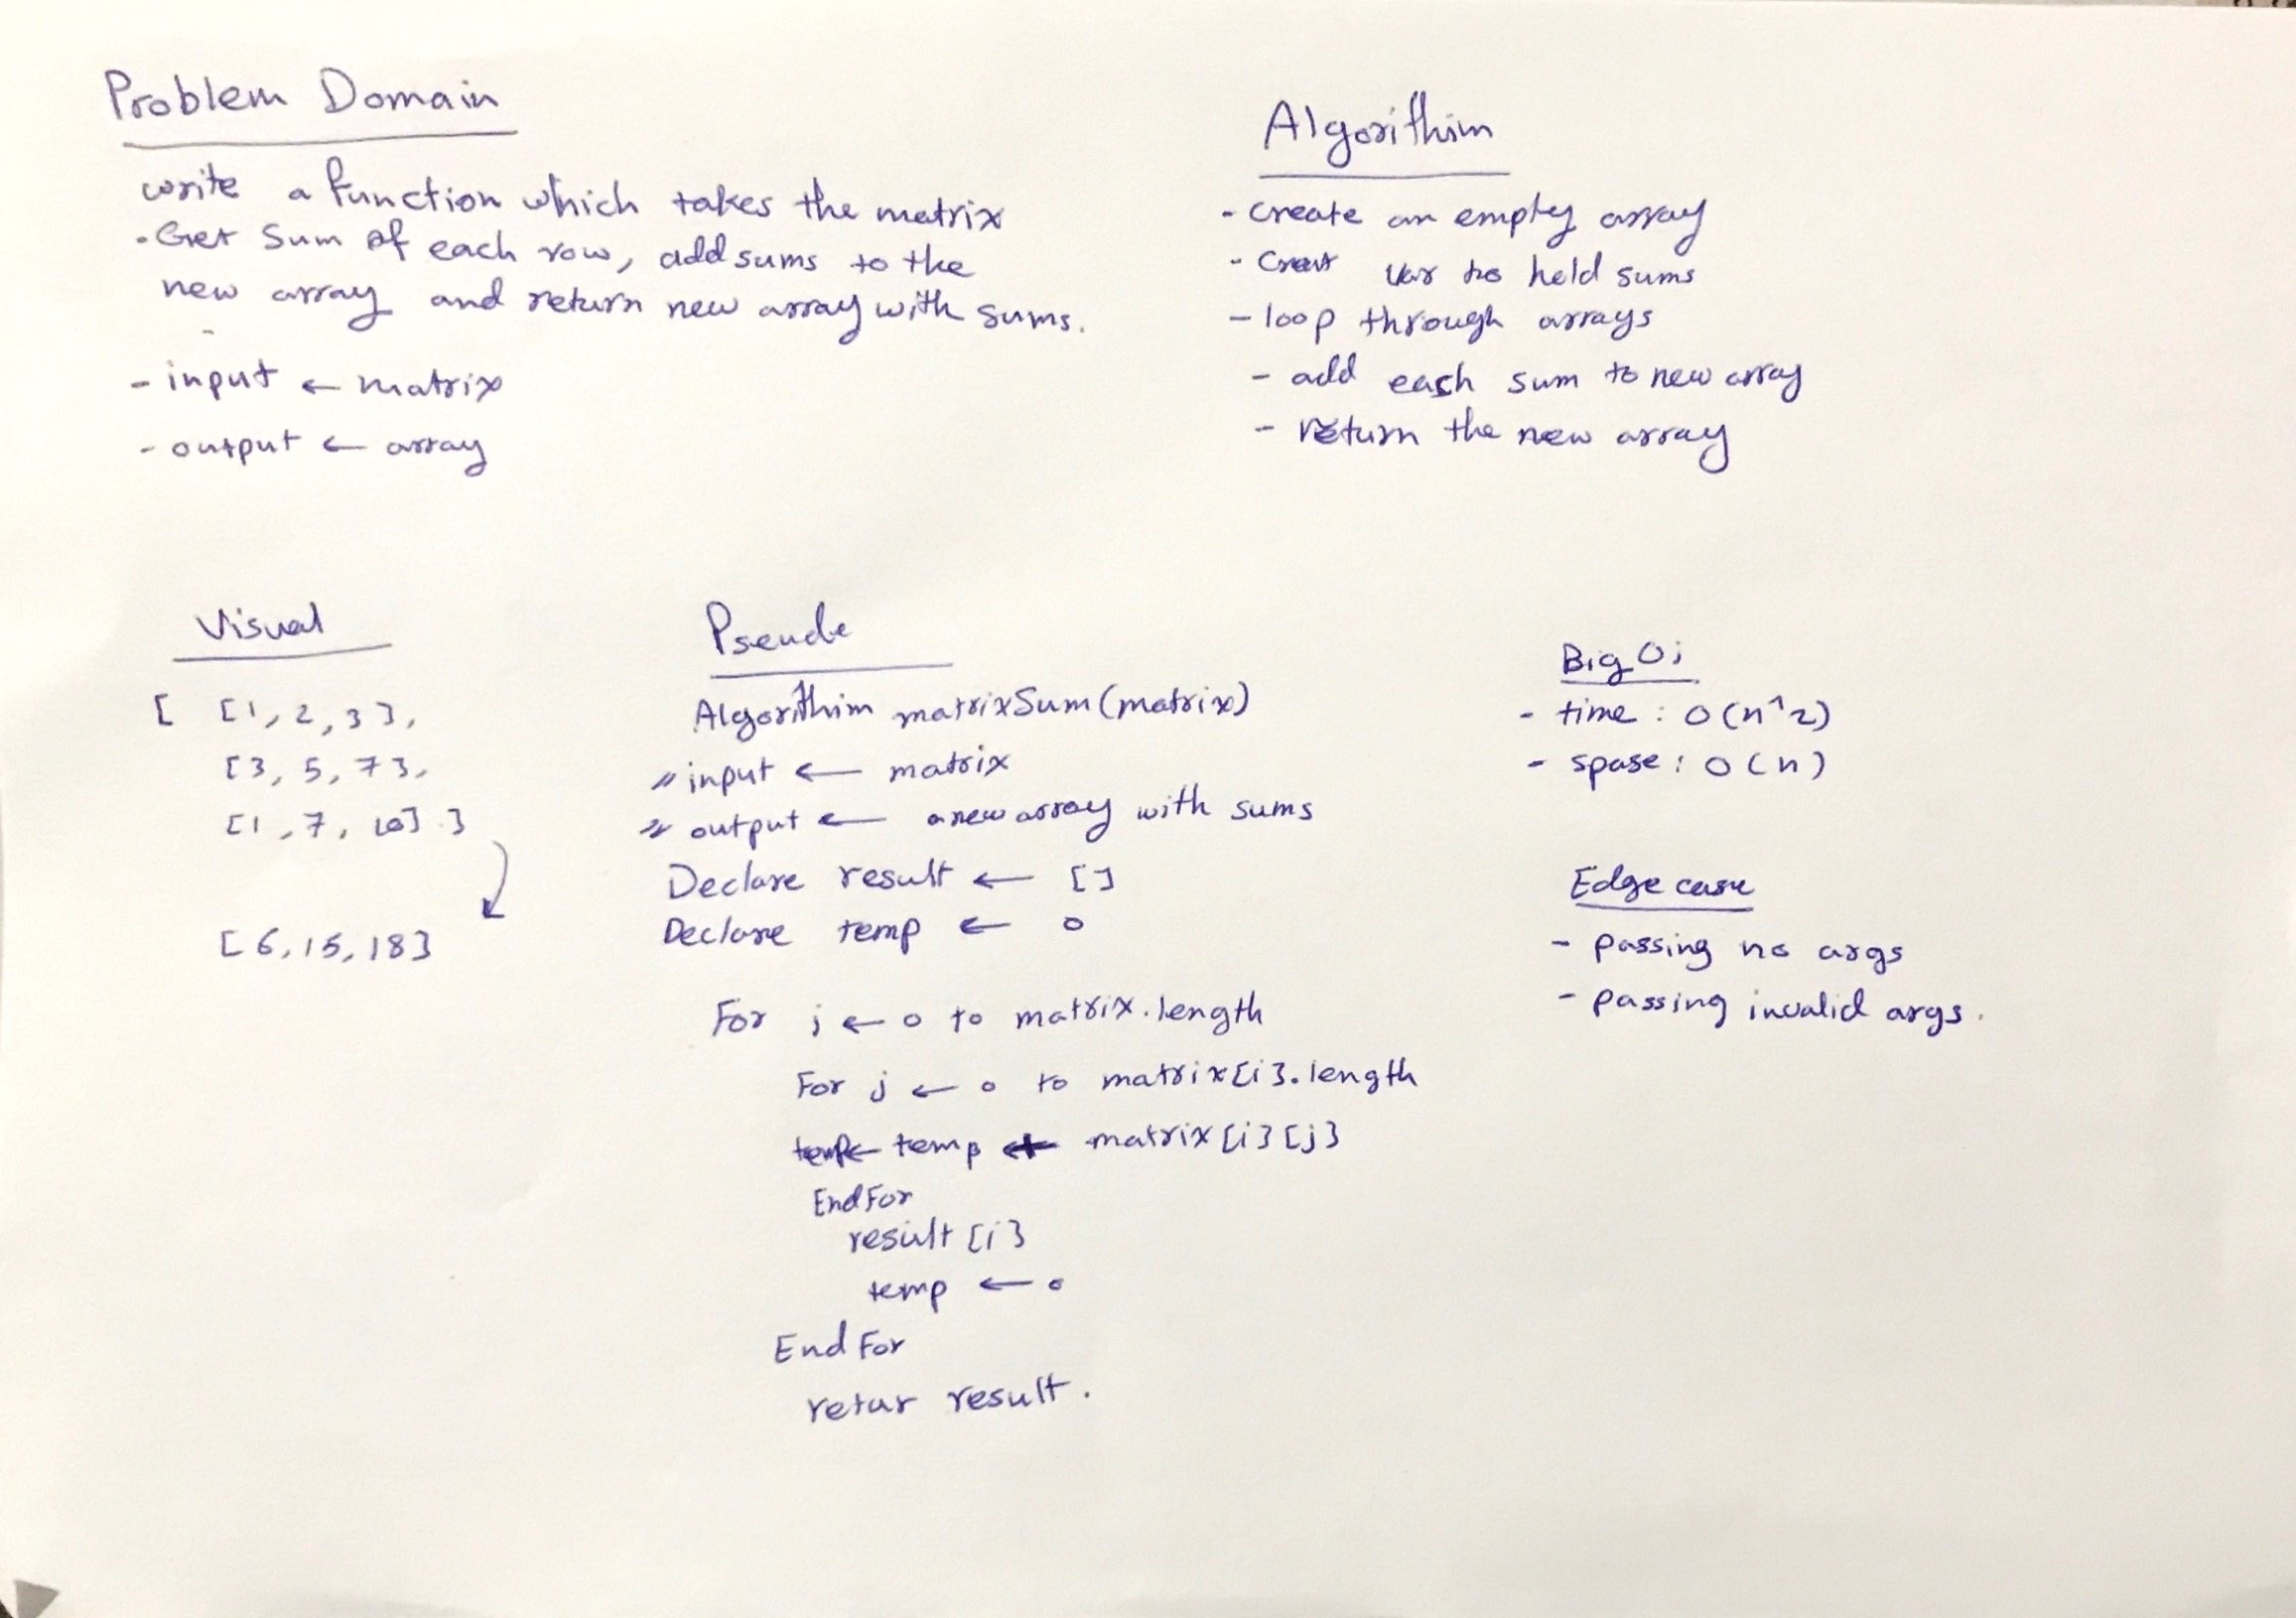 Problem Domain
write a function which takes the matrix
. Get sum of each row, add sums to the
new array and return new array with sums.
- input ← matrix
- output ← array
Algorithim
- create an empty array
- Creat var to hold sums
- loop through arrays
- add each sum to new array
- return the new array
Visual
[ [1, 2, 3],
[3, 5, 7],
[1, 7, 10] ]
[6, 15, 18]
Pseude
Algorithim matrixSum(matrix)
// input ← matrix
// output ← a new array with sums
Declare result ← []
Declare temp ← 0
For i ← 0 to matrix.length
For j ← 0 to matrix[i].length
temp ← temp + matrix[i][j]
End For
result [i]
temp ← 0
End For
retur result.
Big O;
- time : O(n^2)
- spase : O(n)
Edge case
- passing no args
- passing invalid args.